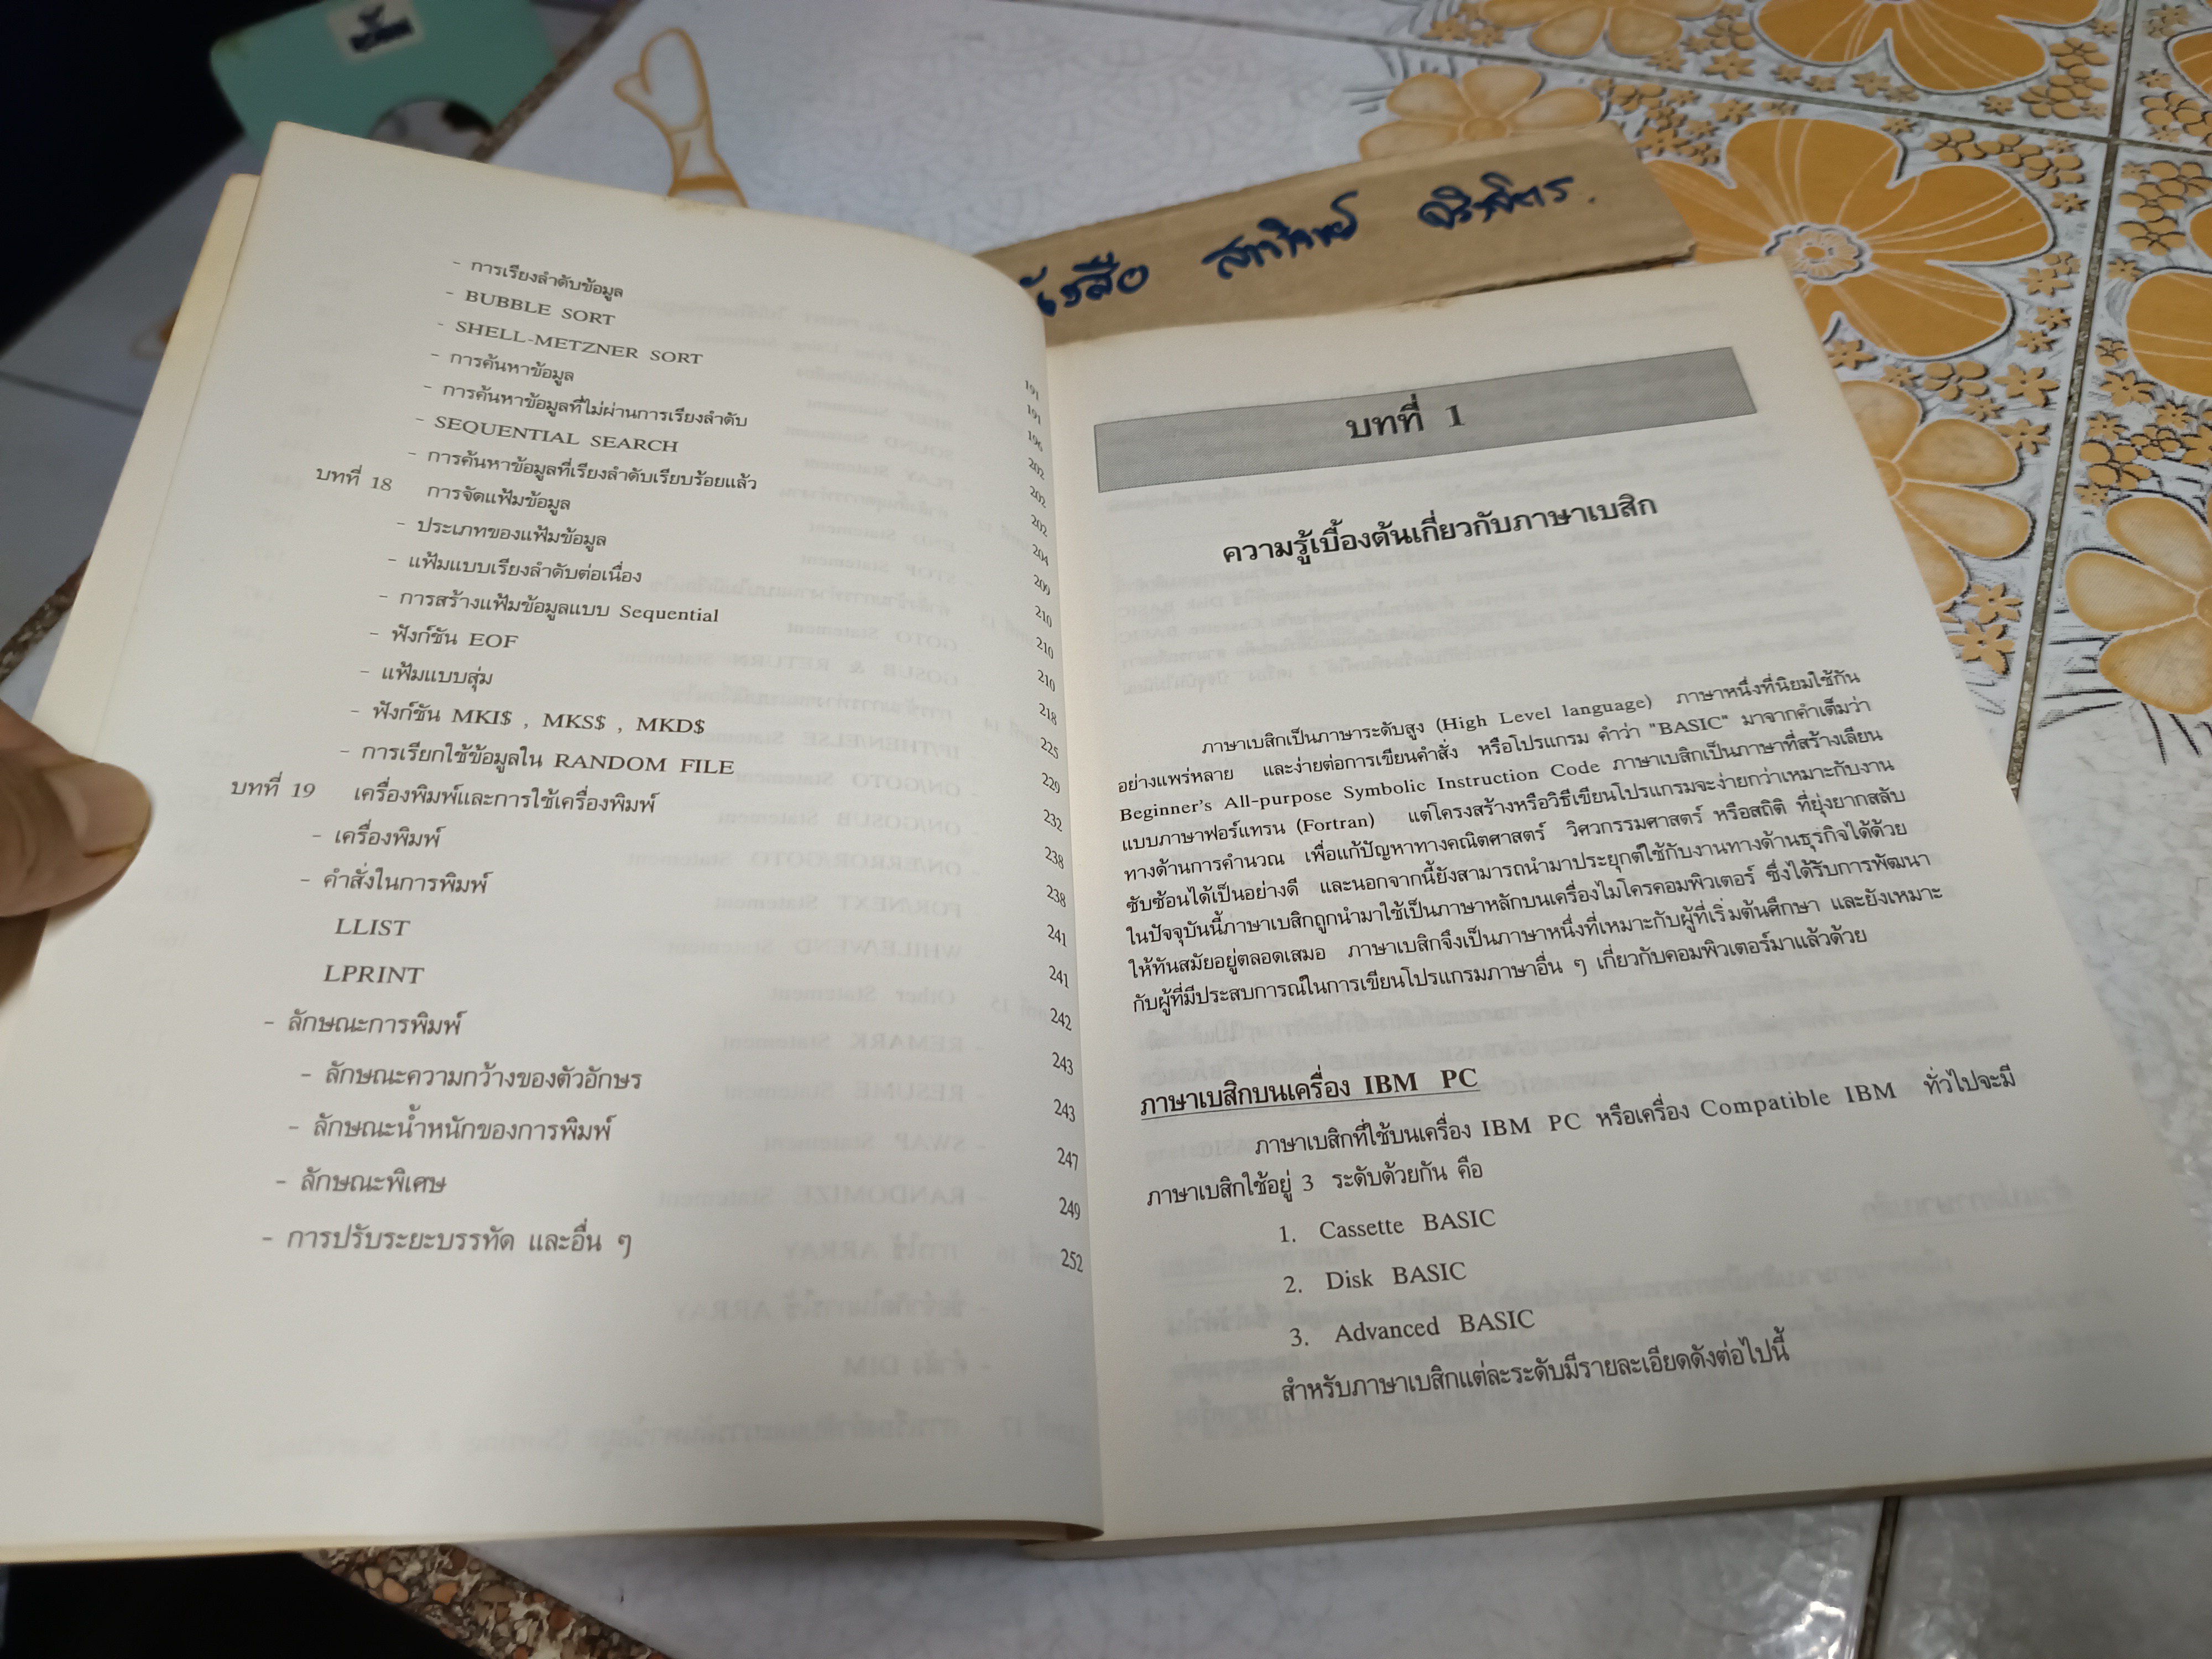 - การเรียงลำดับข้อมูล 191
- BUBBLE SORT 191
- SHELL-METZNER SORT 196
- การค้นหาข้อมูล 202
- การค้นหาข้อมูลที่ไม่ผ่านการเรียงลำดับ 202
- SEQUENTIAL SEARCH 202
- การค้นหาข้อมูลที่เรียงลำดับเรียบร้อยแล้ว 204
บทที่ 18 การจัดแฟ้มข้อมูล 209
- ประเภทของแฟ้มข้อมูล 210
- แฟ้มแบบเรียงลำดับต่อเนื่อง 210
- การสร้างแฟ้มข้อมูลแบบ Sequential 210
- ฟังก์ชัน EOF 218
- แฟ้มแบบสุ่ม 225
- ฟังก์ชัน MKI$ , MKS$ , MKD$ 229
- การเรียกใช้ข้อมูลใน RANDOM FILE 232
บทที่ 19 เครื่องพิมพ์และการใช้เครื่องพิมพ์ 238
- เครื่องพิมพ์ 238
- คำสั่งในการพิมพ์ 241
LLIST 241
LPRINT 242
- ลักษณะการพิมพ์ 243
- ลักษณะความกว้างของตัวอักษร 243
- ลักษณะน้ำหนักของการพิมพ์ 247
- ลักษณะพิเศษ 249
- การปรับระยะบรรทัด และอื่น ๆ 252
บทที่ 1
ความรู้เบื้องต้นเกี่ยวกับภาษาเบสิก
ภาษาเบสิกเป็นภาษาระดับสูง (High Level language) ภาษาหนึ่งที่นิยมใช้กัน
อย่างแพร่หลาย และง่ายต่อการเขียนคำสั่ง หรือโปรแกรม คำว่า "BASIC" มาจากคำเต็มว่า
Beginner's All-purpose Symbolic Instruction Code ภาษาเบสิกเป็นภาษาที่สร้างเลียน
แบบภาษาฟอร์แทรน (Fortran) แต่โครงสร้างหรือวิธีเขียนโปรแกรมจะง่ายกว่าเหมาะกับงาน
ทางด้านการคำนวณ เพื่อแก้ปัญหาทางคณิตศาสตร์ วิศวกรรมศาสตร์ หรือสถิติ ที่ยุ่งยากสลับ
ซับซ้อนได้เป็นอย่างดี และนอกจากนี้ยังสามารถนำมาประยุกต์ใช้กับงานทางด้านธุรกิจได้ด้วย
ในปัจจุบันนี้ภาษาเบสิกถูกนำมาใช้เป็นภาษาหลักบนเครื่องไมโครคอมพิวเตอร์ ซึ่งได้รับการพัฒนา
ให้ทันสมัยอยู่ตลอดเสมอ ภาษาเบสิกจึงเป็นภาษาหนึ่งที่เหมาะกับผู้ที่เริ่มต้นศึกษา และยังเหมาะ
กับผู้ที่มีประสบการณ์ในการเขียนโปรแกรมภาษาอื่น ๆ เกี่ยวกับคอมพิวเตอร์มาแล้วด้วย
ภาษาเบสิกบนเครื่อง IBM PC
ภาษาเบสิกที่ใช้บนเครื่อง IBM PC หรือเครื่อง Compatible IBM ทั่วไปจะมี
ภาษาเบสิกใช้อยู่ 3 ระดับด้วยกัน คือ
1. Cassette BASIC
2. Disk BASIC
3. Advanced BASIC
สำหรับภาษาเบสิกแต่ละระดับมีรายละเอียดดังต่อไปนี้